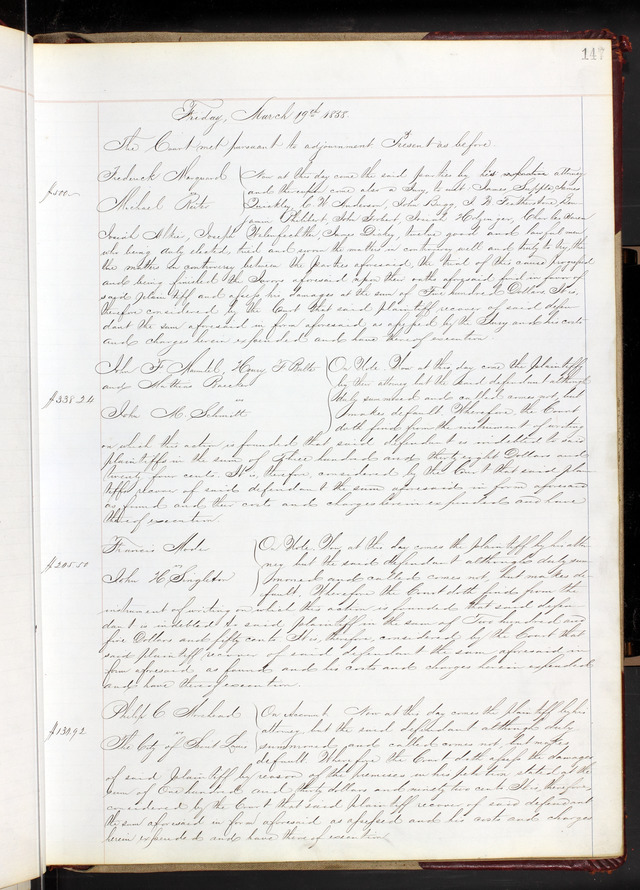 147
Friday, March 19th 1858.
The Court met pursuant to adjournment Present as before.
Frederick
vs
Michael
$500—
Now at this day come the said parties by their respective attorneys
and thereupon come also a Jury, to wit James Supple, James
Quickly, C. W. Anderson, John Bugg,
John
Joseph twelve good and lawful men
who being duly elected, tried and sworn the matter in controversy well and truly to try,
the matter in controversy between the parties aforesaid, the trial of this cause progressed
and being finished the Jurors aforesaid upon their oath aforesaid find in favor of
said plaintiff and assess his damages at the sum of Five hundred Dollars. It is
therefore considered by the Court that said plaintiff recover of said defen-
dant the sum aforesaid in form aforesaid, assessed by the Jury and his costs
and charges herein expended, and have thereof execution
John F. Henry T.
and Mathias
vs
John M. Schmidt
$338.24
On Note. Now at this day come the plaintiffs
by their attorney but the said defendant although
duly summoned and called comes not, but
makes default. Wherefore the Court
doth find from the instrument of writing
on which this action is founded that said defendant is indebted to said
plaintiffs in the sum of Three hundred and thirty eight Dollars and
twenty four cents. It is, therefore, considered by the Court that said plain-
tiffs recover of said defendant the sum aforesaid in form aforesaid
as found and their costs and charges herein expended and have
thereof execution.
Francis
vs
John H. Singleton
$205.50
On Note. Now at this day comes the plaintiff by his attor-
ney but the said defendant although duly sum-
moned and called comes not, but makes de-
fault. Wherefore the Court doth find from the
instrument of writing on which this action is founded that said defen-
dant is indebted to said plaintiff in the sum of Two hundred and
five Dollars and fifty cents. It is, therefore, considered by the Court that
said plaintiff recover of said defendant the sum aforesaid in
form aforesaid as found and his costs and charges herein expended
and have thereof execution.
Philip C.
vs
The City of Saint Louis
$130.92
On Account. Now at this day comes the plaintiff by his
attorney but the said defendant although duly
summoned and called comes not, but makes
default. Wherefore the Court doth assess the damages
of said plaintiff by reason of the premises in his petition stated at the
sum of One hundred and thirty dollars and ninety two cents. It is, therefore,
considered by the Court that said plaintiff recover of said defendant
the sum aforesaid in form aforesaid as assessed and his costs and charges
herein expended and have thereof execution